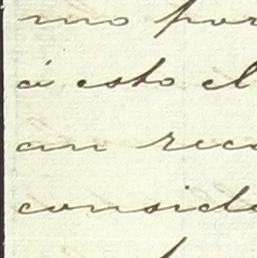 mo por
á esto el
an reco
conside